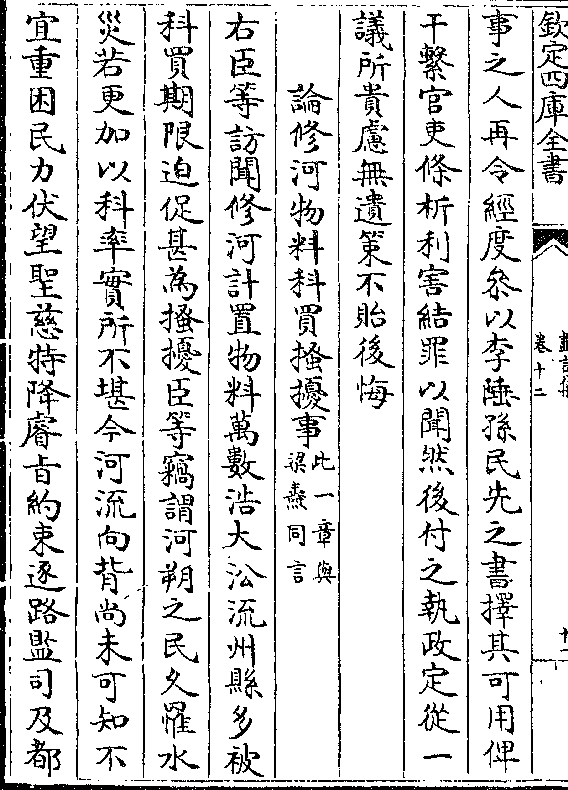 欽定四庫全書
卷十二
事之人再令經度叅以李陲孫民先之書擇其可用俾
干繫官吏條析利害結罪以聞然後付之執政定從一
議所貴慮無遺策不貽後悔
論修河物料科買搔擾事此一章與梁燾同言
右臣等訪聞修河計置物料萬數浩大㳂流州縣多被
科買期限迫促甚為搔擾臣等竊謂河朔之民久罹水
災若更加以科率實所不堪今河流向背尚未可知不
宜重困民力伏望聖慈特降睿旨約束逐路監司及都